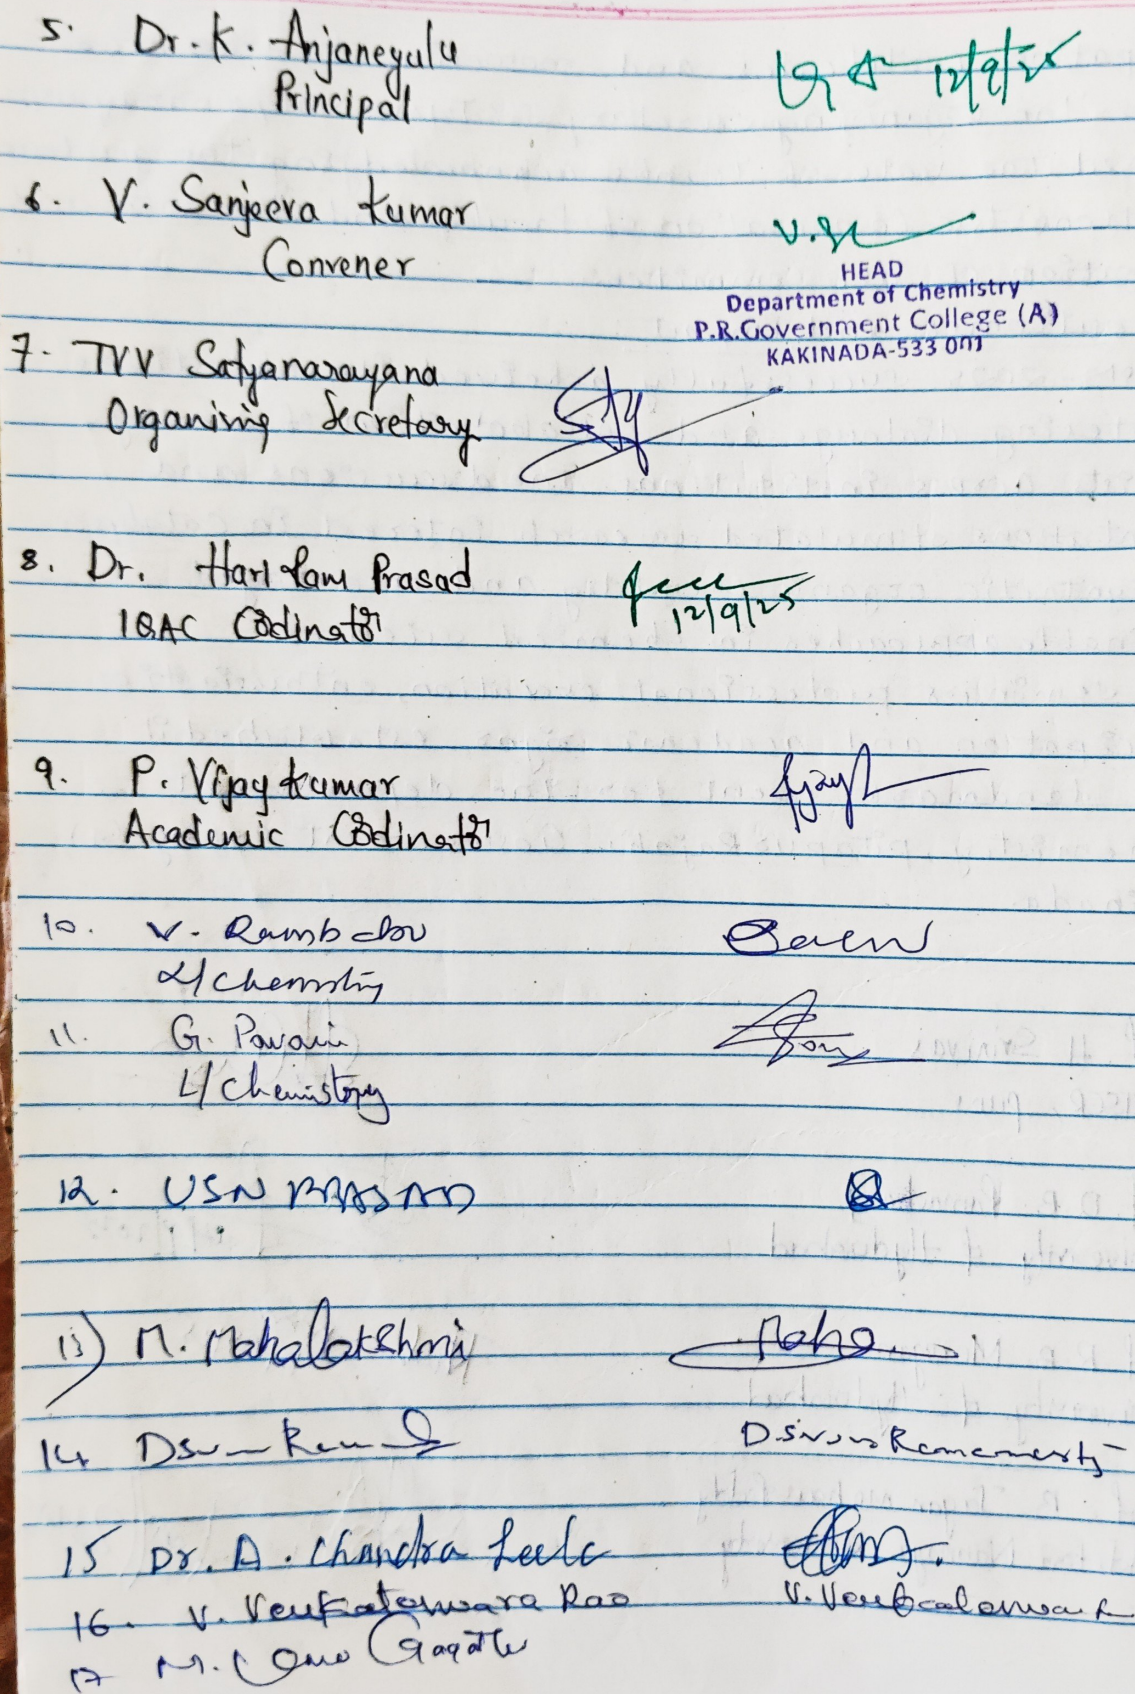 5. Dr. K. Anjaneyulu
Principal
12/9/25
6. V. Sanjeeva Kumar
Convener
V.
HEAD
Department of Chemistry
P.R.Government College (A)
KAKINADA-533 001
7. TVV Satyanarayana
Organising Secretary
8. Dr. Hari Ram Prasad
IQAC Coordinator
12/9/25
9. P. Vijay Kumar
Academic Coordinator
10. V. Rambabu
L/Chemistry
11. G. Pavani
L/Chemistry
12. USN PRASAD
13) M. Mahalakshmi
Maha
14
15 Dr. A. Chandra Leela
16. V. Venkateswara Rao
17 M.